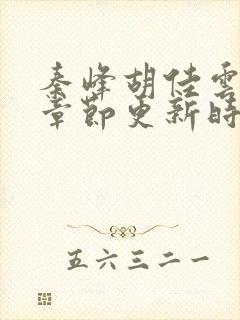 秦峰胡佳雲
章節更新時
五六三二一